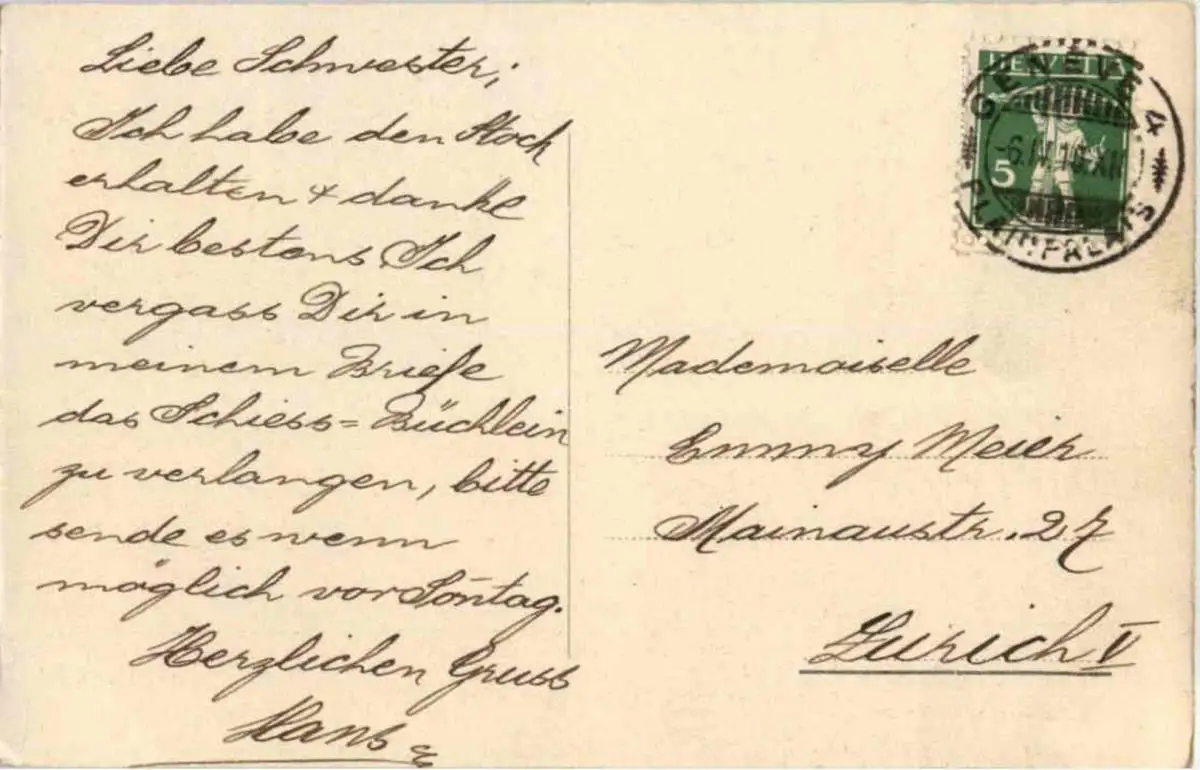 Liebe Schwester;
Ich habe den Stock
erhalten + danke
Dir bestens. Ich
vergass Dir in
meinem Briefe
das Schiess=Büchlein
zu verlangen, bitte
sende es wenn
möglich vor Son̄tag.
Herzlichen Gruss
Hans
HELVETIA
5
GENÈVE 4
PLAINPALAIS
Mademoiselle
Emmy Meier
Mainaustr. 27
Zürich V